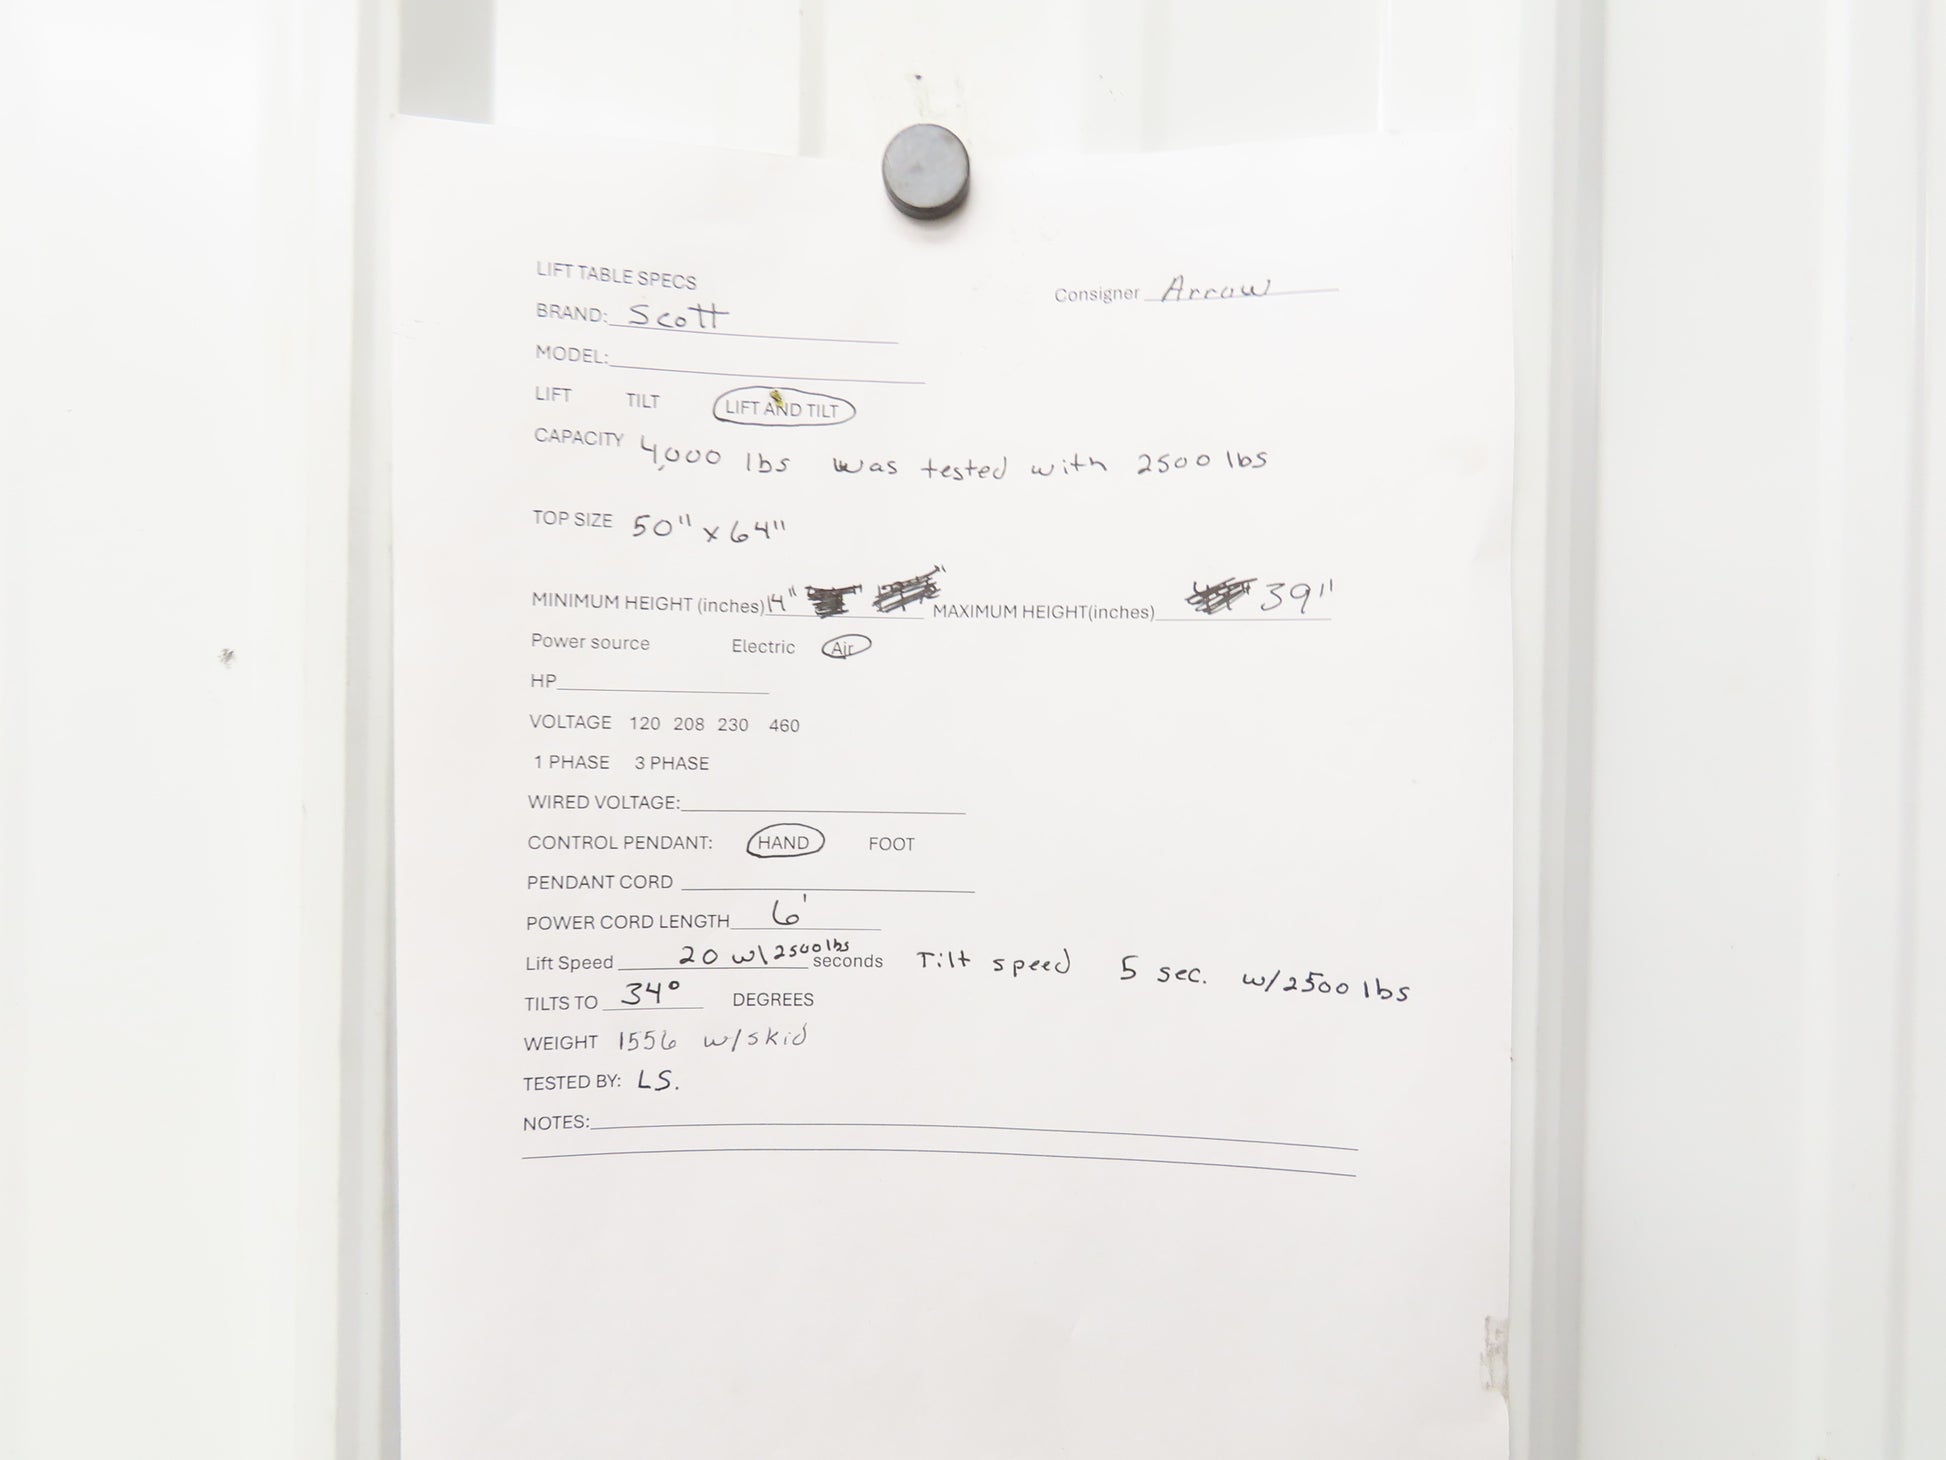 LIFT TABLE SPECS
Consigner Arrow
BRAND: Scott
MODEL:
LIFT TILT LIFT AND TILT
CAPACITY 4,000 lbs was tested with 2500 lbs
TOP SIZE 50" x 64"
MINIMUM HEIGHT (inches) 14" MAXIMUM HEIGHT(inches) 39"
Power source Electric Air
HP
VOLTAGE 120 208 230 460
1 PHASE 3 PHASE
WIRED VOLTAGE:
CONTROL PENDANT: HAND FOOT
PENDANT CORD
POWER CORD LENGTH 6'
Lift Speed 20 w\2500 lbs seconds Tilt speed 5 sec. w/2500 lbs
TILTS TO 34° DEGREES
WEIGHT 1556 w/skid
TESTED BY: LS.
NOTES: